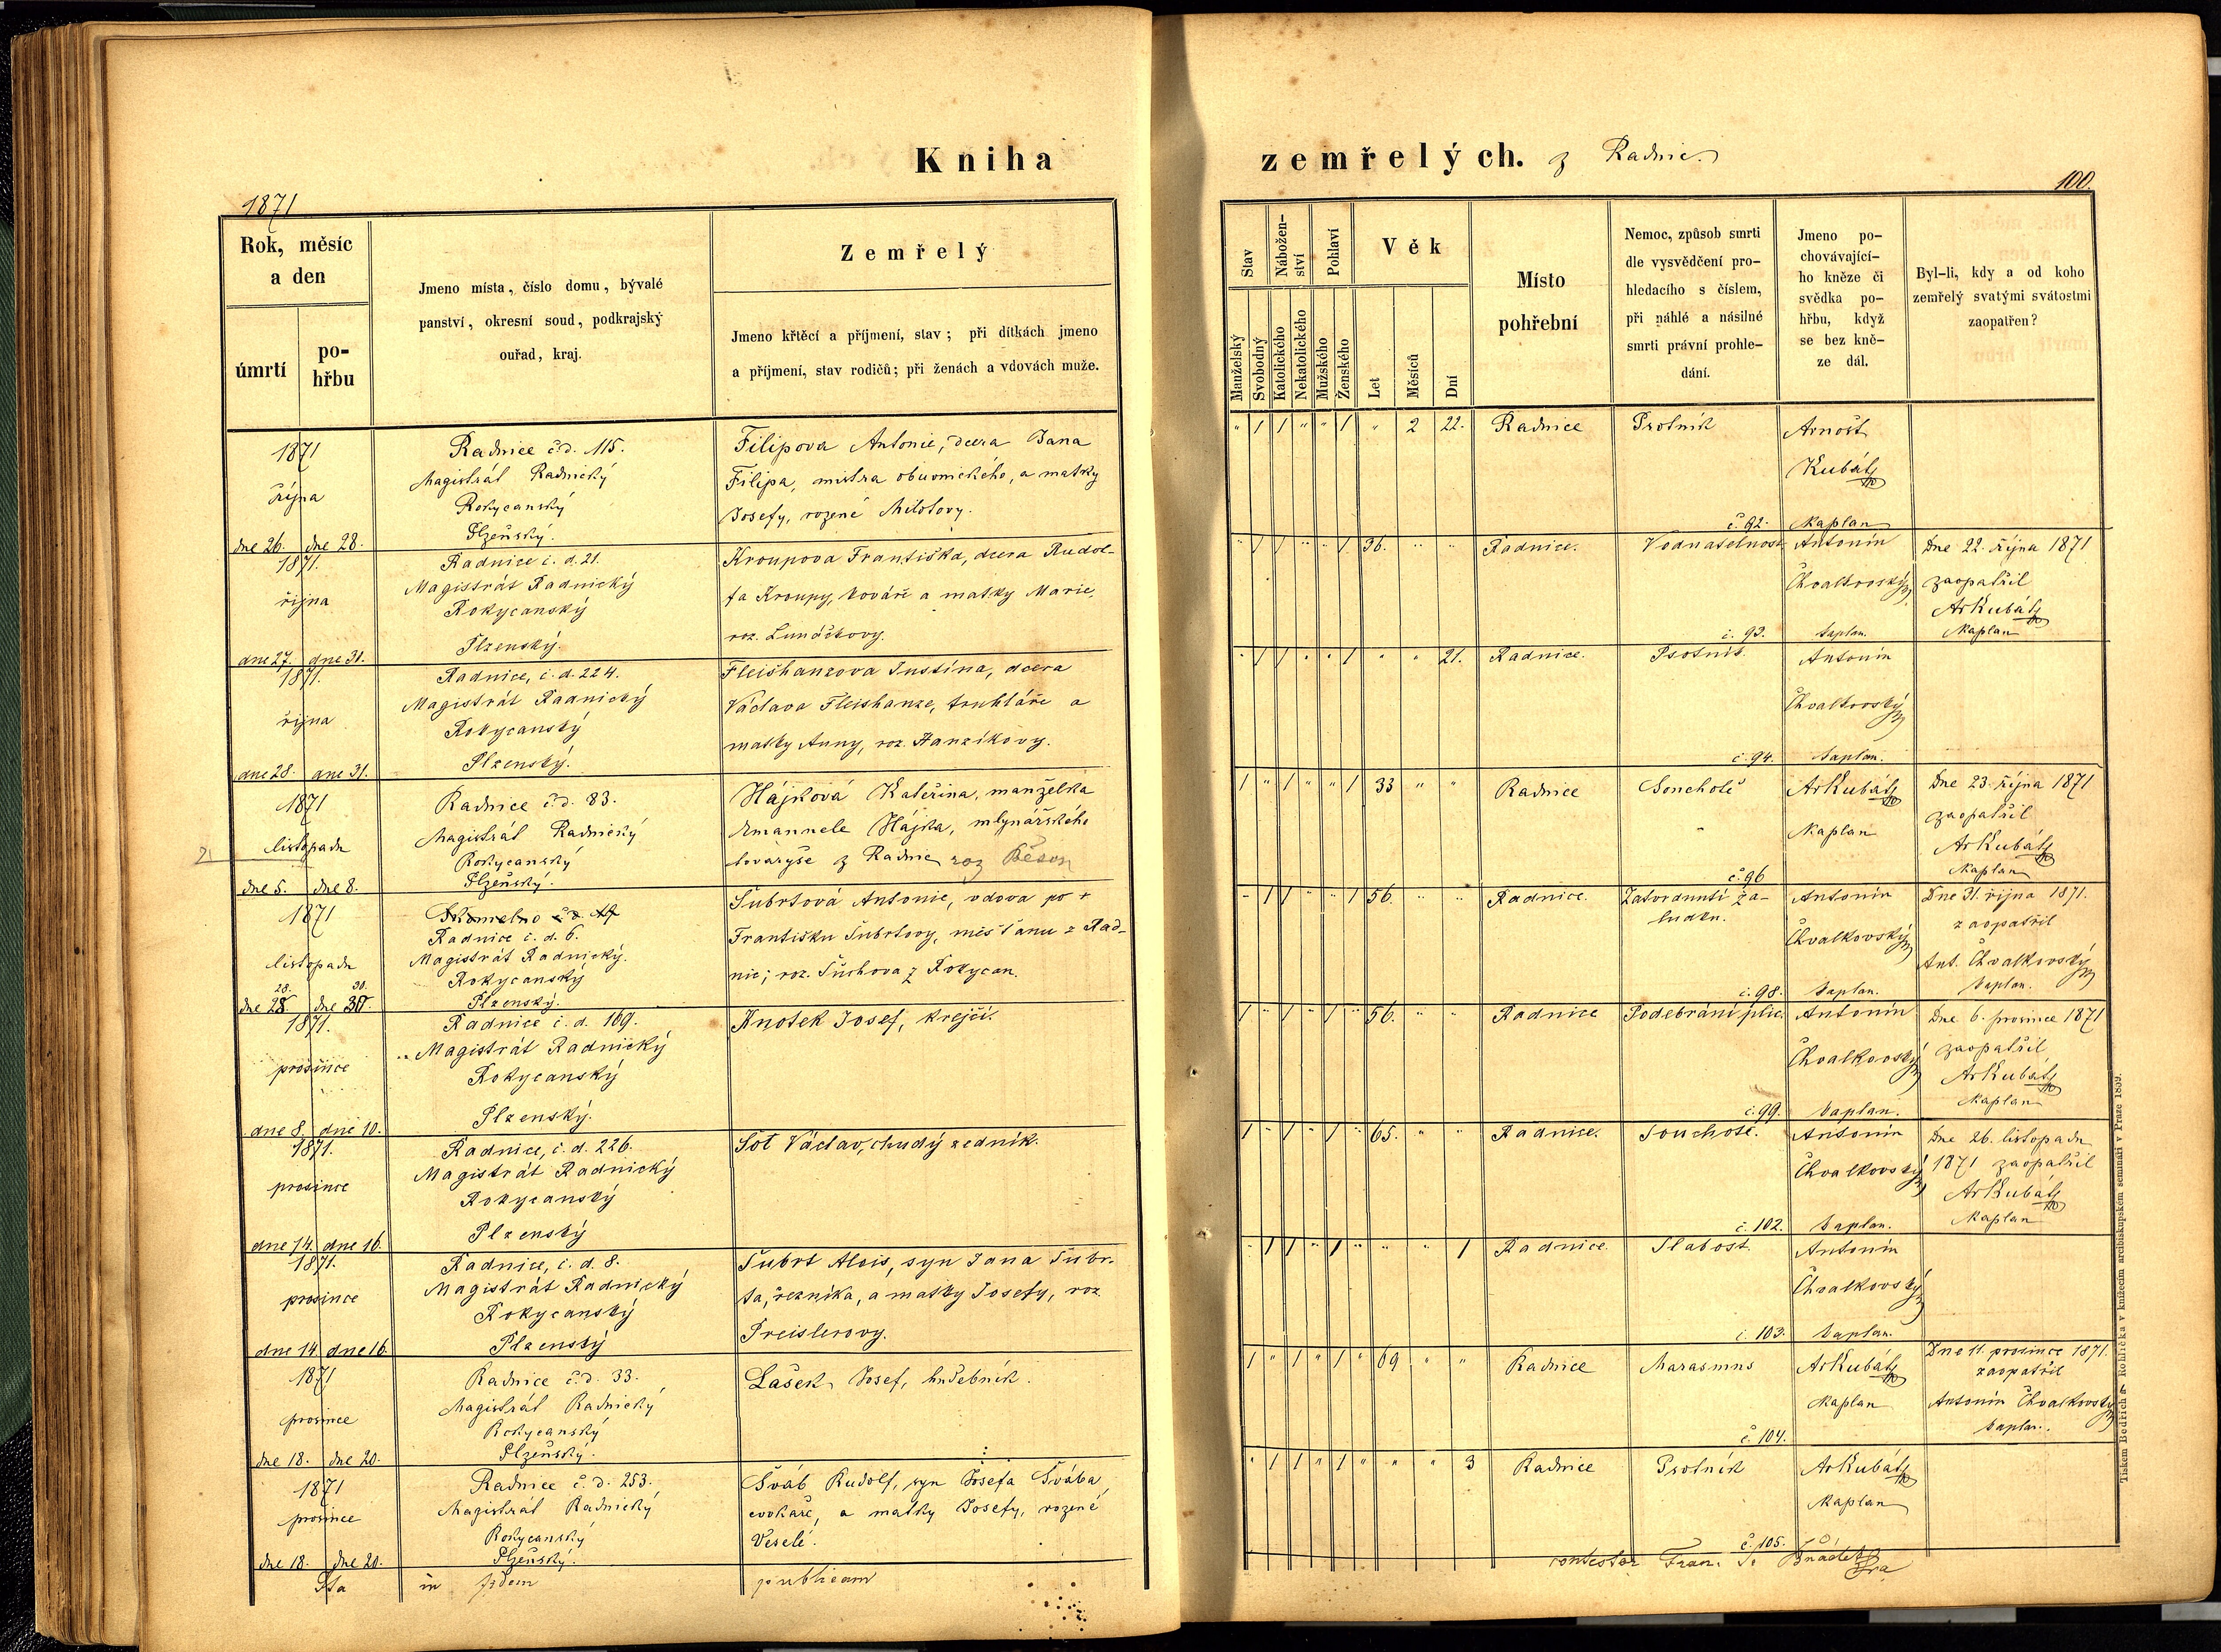 Kniha
zemřelých. z Radnic.
1871
100.
Rok, měsíc
a den
úmrtí
po-
hřbu
Jmeno místa, číslo domu, bývalé
panství, okresní soud, podkrajský
ouřad, kraj.
Zemřelý
Jmeno křtěcí a příjmení, stav; při dítkách jmeno
a příjmení, stav rodičů; při ženách a vdovách muže.
Stav
Nábožen-
ství
Pohlaví
Věk
Manželský
Svobodný
Katolického
Nekatolického
Mužského
Ženského
Let
Měsíců
Dní
Místo
pohřební
Nemoc, způsob smrti
dle vysvědčení pro-
hledacího s číslem,
při náhlé a násilné
smrti právní prohle-
dání.
Jmeno po-
chovávající-
ho kněze či
svědka po-
hřbu, když
se bez kně-
ze dál.
Byl-li, kdy a od koho
zemřelý svatými svátostmi
zaopatřen?
1871
října
dne 26. dne 28.
Radnice č.d. 115.
Magistrát Radnický
Rokycanský
Plzeňský.
Filipova Antonie, dcera Jana
Filipa, mistra obuvnického, a matky
Josefy, rozené Milotovy.
" 1 1 " " 1 " 2 22. Radnice Psotník
č. 92.
Arnošt
Kubát
Kaplan
1871.
října
dne 27. dne 31.
Radnice č. d. 21.
Magistrát Radnický
Rokycanský
Plzenský.
Kroupova Františka, dcera Rudol-
fa Kroupy, kováře a matky Marie,
roz. Lunáčkovy.
" 1 1 " " 1 36. " " Radnice. Vodnatelnost
č. 93.
Antonín
Chvalkovský
kaplan.
Dne 22. října 1871
zaopatřil
ArKubát
Kaplan
1871.
října
dne 28. dne 31.
Radnice, č. d. 224.
Magistrát Radnický
Rokycanský
Plzenský.
Fleishanzova Justina, dcera
Václava Fleishanze, truhláře a
matky Anny, roz. Hanzíkovy.
" 1 1 " " 1 " " 21. Radnice. Psotník.
č. 94.
Antonín
Chvalkovský
kaplan.
1871
listopadu
dne 5. dne 8.
Radnice č.d. 83.
Magistrát Radnický
Rokycanský
Plzeňský.
Hájková Kateřina, manželka
Emanuele Hájka, mlynářského
tovaryše z Radnic roz
1 " 1 " " 1 33 " " Radnice Souchotě
č. 96
ArKubát
Kaplan
Dne 23. října 1871
zaopatřil
ArKubát
Kaplan
1871
listopadu
28. 30.
dne 28. dne 30.
Radnice č. d. 6.
Magistrát Radnický.
Rokycanský
Plzenský.
Šubrtová Antonie, vdova po +
Františku Šubrtovy, měšťanu z Rad-
nic; roz. Šuchova z Rokycan.
" 1 1 " " 1 56. " " Radnice. Zatvrdnutí ža-
ludku.
č. 98.
Antonín
Chvalkovský
kaplan.
Dne 31. října 1871.
zaopatřil
Ant. Chvalkovský
kaplan.
1871.
prosince
dne 8. dne 10.
Radnice č. d. 169.
Magistrát Radnický
Rokycanský
Plzenský.
Knotek Josef, krejčí.
1 " 1 " 1 " 56. " " Radnice Podebrání plic.
č. 99.
Antonín
Chvalkovský
kaplan.
Dne 6. prosince 1871
zaopatřil
ArKubát
Kaplan
1871.
prosince
dne 14. dne 16.
Radnice, č. d. 226.
Magistrát Radnický
Rokycanský
Plzenský
Šot Václav, chudý zedník.
1 " 1 " 1 " 65. " " Radnice. Souchotě.
č. 102.
Antonín
Chvalkovský
kaplan.
Dne 26. listopadu
1871 zaopatřil
ArKubát
Kaplan
1871.
prosince
dne 14. dne 16.
Radnice, č. d. 8.
Magistrát Radnický
Rokycanský
Plzenský
Šubrt Alois, syn Jana Šubr-
ta, řezníka, a matky Josefy, roz
Preislerovy.
" 1 1 " 1 " " " 1 Radnice. Slabost.
č. 103.
Antonín
Chvalkovský
kaplan.
1871
prosince
dne 18. dne 20.
Radnice č.d. 33.
Magistrát Radnický
Rokycanský
Plzeňský.
Lašek Josef, hudebník.
1 " 1 " 1 " 69 " " Radnice Marasmus
č. 104.
ArKubát
Kaplan
Dne 11. prosince 1871.
zaopatřil
Antonín Chvalkovský
kaplan.
1871
prosince
dne 18. dne 20.
Radnice č. d. 253.
Magistrát Radnický
Rokycanský
Plzeňský.
Šváb Rudolf, syn Josefa Švába,
cvokaře, a matky Josefy, rozené
Veselé.
" 1 1 " 1 " " " 3 Radnice Psotník
č. 105.
ArKubát
Kaplan
Ita in fidem publicam
contestor Fran. S.
Tiskem Bedřich a Rohlíčka v knížecím arcibiskupském semináři v Praze 1859.